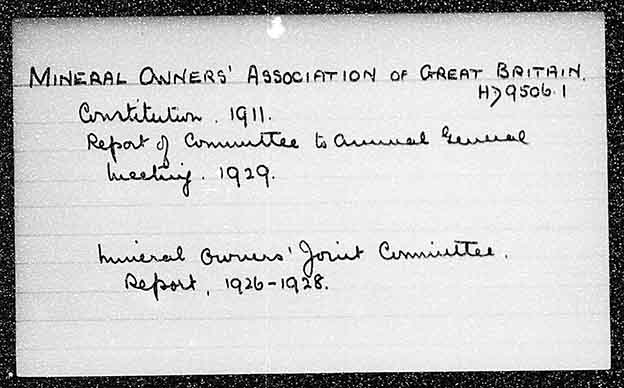 MINERAL OWNERS' ASSOCIATION OF GREAT BRITAIN.
HD9506.1
Constitution. 1911.
Report of Committee to Annual General
Meeting. 1929.
Mineral Owners' Joint Committee.
Report, 1926-1928.